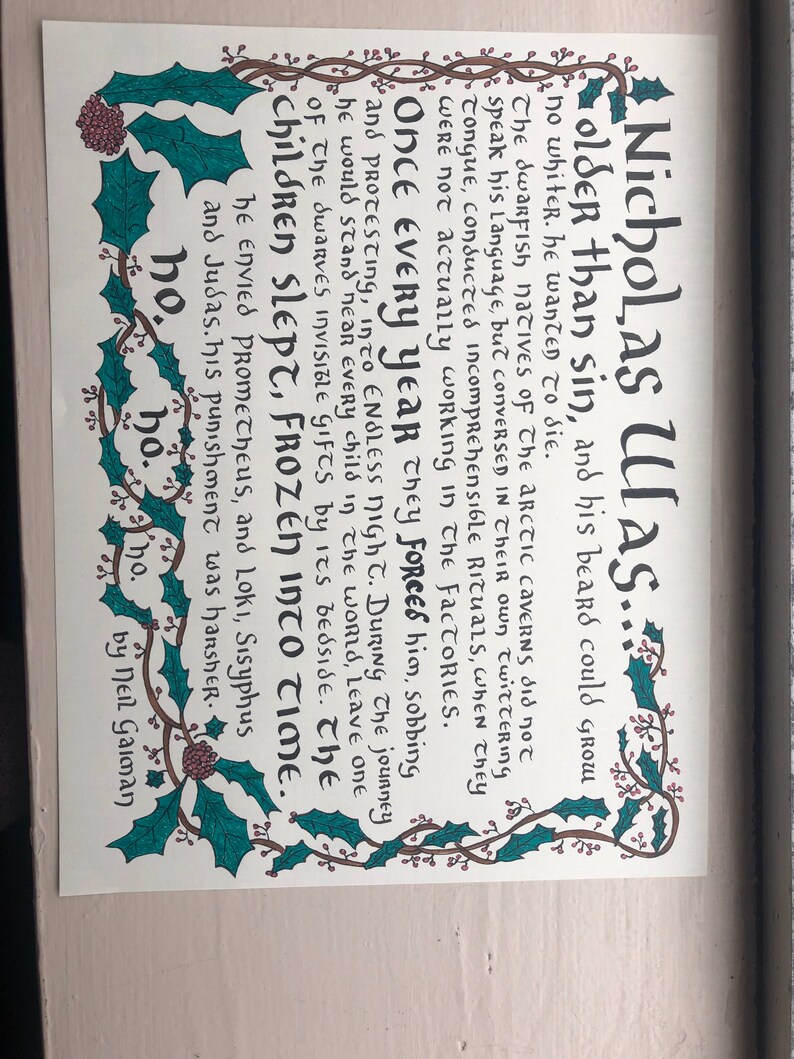 Nicholas Was...
older than sin, and his beard could grow
no whiter. he wanted to die.
The dwarfish natives of the arctic caverns did not
speak his language, but conversed in their own twittering
tongue, conducted incomprehensible rituals, when they
were not actually working in the factories.
Once every year they forced him, sobbing
and protesting, into Endless night. During the journey
he would stand near every child in the world, leave one
of the dwarves invisible gifts by its bedside. The
children slept, frozen into time.
he envied Prometheus, and Loki, Sisyphus
and Judas. his punishment was harsher.
ho.
ho.
ho.
by Neil Gaiman